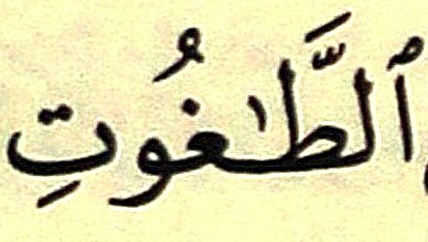 ٱلطَّٰغُوتِ